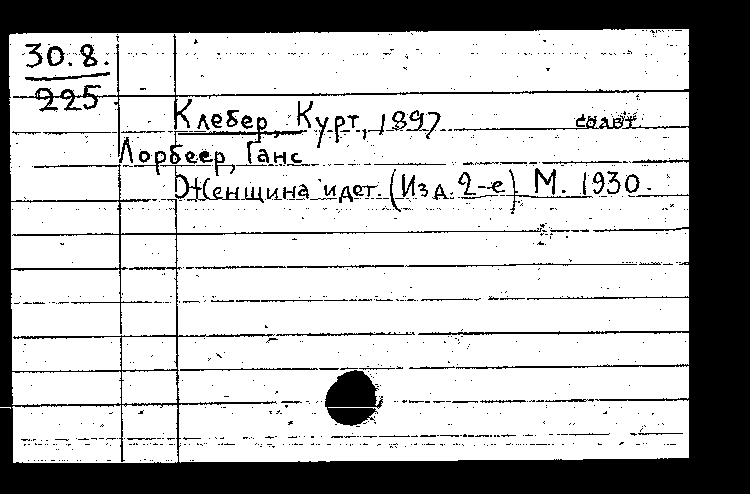 30.8.
225
Клебер, Курт, 1897 соавт.
Лорбеер, Ганс
Женщина идет. (Изд. 2-е) М. 1930.